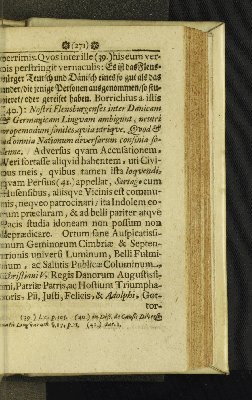 (271)
perrimis. Quos inter ille (39.) his eum ver-
bis perstringit vernaculis: Es ist das Flens-
bürger Teutsch und Dänisch eines so gut als das
ander/ die jenige Personen ausgenommen/ so stu-
dieret/ oder gereiset haben. Borrichius a. istis
(40.): Nostri Flensburgenses inter Danicam
& Germanicam Linguam ambigunt, neutri
propemodum similes, quia utriqve. Qvod &
ad omnia Nationum diversarum confinia so-
lenne. Adversus qvam Accusationem,
Veri fortasse aliqvid habentem, uti Civi-
bus meis, qvibus tamen ista loqvendi,
qvam Persius (41.) appellat, Sartago cum
Husensibus, aliisqve Vicinis est commu-
nis, neqveo patrocinari, ita Indolem eo-
rum præclaram, & ad belli pariter atqve
Pacis studia idoneam non possum non
deprædicare. Ortum sane Auspicatissi-
mum Geminorum Cimbriæ & Septen-
trionis universi Luminum, Belli Fulmi-
num, ac Salutis Publicæ Columinum,
Christiani V. Regis Danorum Augustissi-
mi, Patriæ Patris, ac Hostium Triumpha-
toris, Pii, Justi, Felicis, & Adolphi, Got-
tor-
(39.) l. c. p. 101. (40.) in Diss. de Causis Diversit.
Linguarum §. 17. p. 11. (41.) Sat. 1.